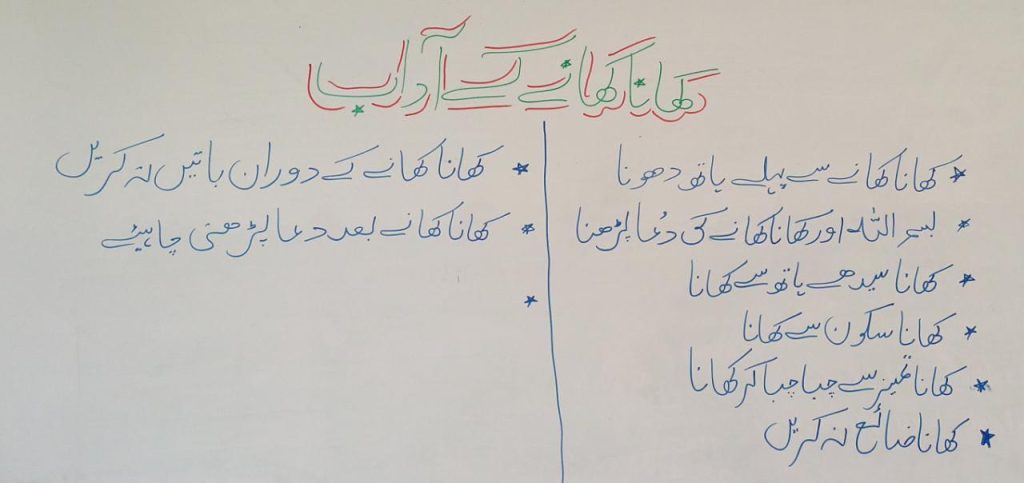 کھانا کھانے کے آداب
کھانا کھانے سے پہلے ہاتھ دھونا
بسم اللہ اور کھانا کھانے کی دُعا پڑھنا
کھانا سیدھے ہاتھ سے کھانا
کھانا سکون سے کھانا
کھانا تمیز سے چبا چبا کر کھانا
کھانا ضائع نہ کریں
کھانا کھانے کے دوران باتیں نہ کریں
کھانا کھانے بعد دعا پڑھنی چاہیئے